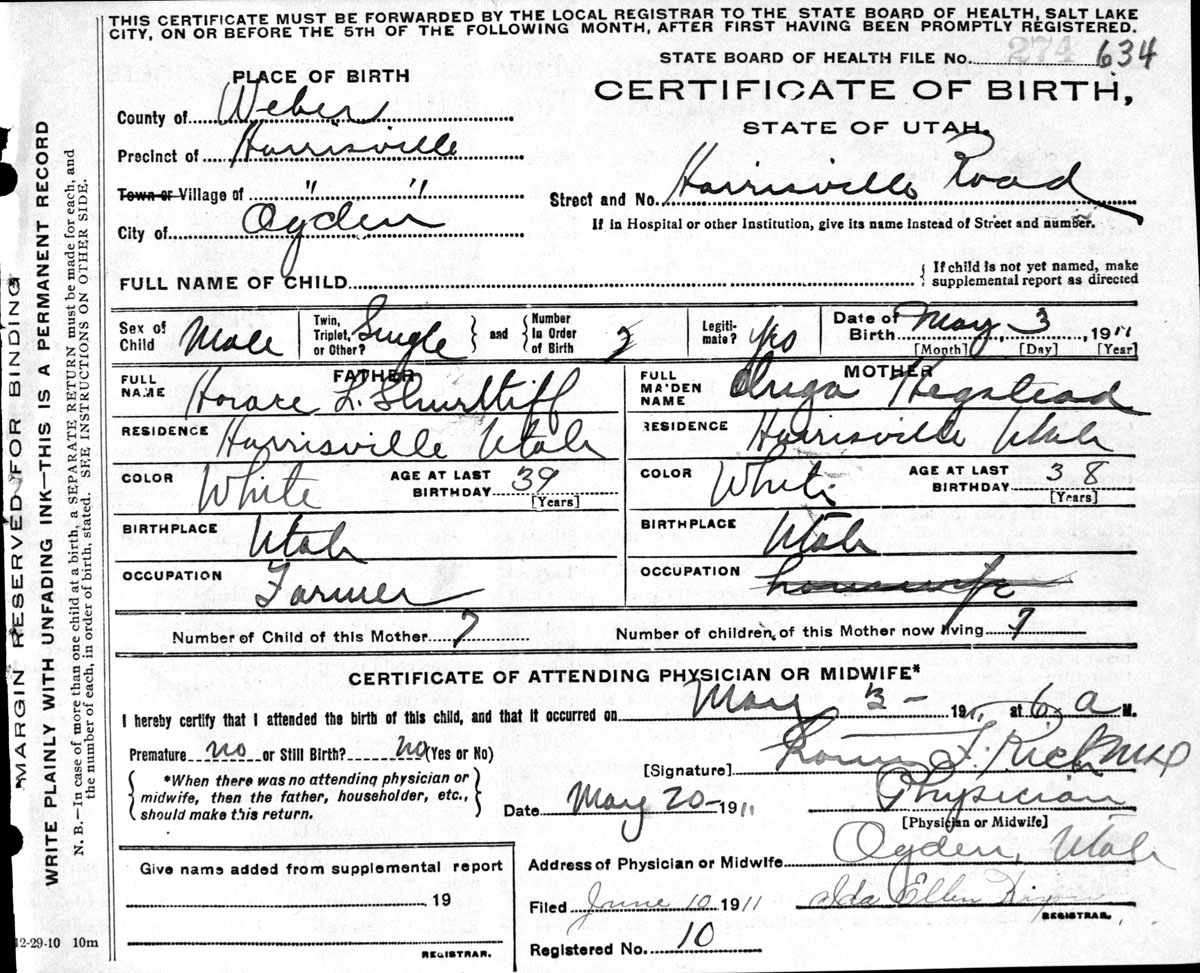 THIS CERTIFICATE MUST BE FORWARDED BY THE LOCAL REGISTRAR TO THE STATE BOARD OF HEALTH, SALT LAKE
CITY, ON OR BEFORE THE 5TH OF THE FOLLOWING MONTH, AFTER FIRST HAVING BEEN PROMPTLY REGISTERED.
274
STATE BOARD OF HEALTH FILE No. 634
PLACE OF BIRTH
CERTIFICATE OF BIRTH,
STATE OF UTAH.
County of Weber
Precinct of Harrisville
Town or Village of " "
City of Ogden
Street and No. Harrisville Road
If in Hospital or other Institution, give its name instead of Street and number.
FULL NAME OF CHILD
{ If child is not yet named, make
supplemental report as directed
Sex of Child Male
Twin, Triplet, or Other? Single } and { Number In Order of Birth
Legitimate? Yes
Date of Birth May 3 1911
[Month] [Day] [Year]
FATHER
FULL NAME Horace L. Shurtliff
RESIDENCE Harrisville Utah
COLOR White AGE AT LAST BIRTHDAY 39
[Years]
BIRTHPLACE Utah
OCCUPATION Farmer
MOTHER
FULL MAIDEN NAME Hegstead
RESIDENCE Harrisville Utah
COLOR White AGE AT LAST BIRTHDAY 38
[Years]
BIRTHPLACE Utah
OCCUPATION housewife
Number of Child of this Mother 7 Number of children, of this Mother now living 7
CERTIFICATE OF ATTENDING PHYSICIAN OR MIDWIFE*
I hereby certify that I attended the birth of this child, and that it occurred on May 3- 1911 at 6 a M.
Premature no or Still Birth? no (Yes or No)
{ *When there was no attending physician or
midwife, then the father, householder, etc.,
should make this return. }
[Signature] F. Rich MD
Date May 20- 1911
Physician
[Physician or Midwife]
Address of Physician or Midwife Ogden, Utah
Filed June 10 1911 Ida Ellen
REGISTRAR.
Registered No. 10
Give name added from supplemental report
19
REGISTRAR.
12-29-10 10m
MARGIN RESERVED FOR BINDING
WRITE PLAINLY WITH UNFADING INK—THIS IS A PERMANENT RECORD
N. B.—In case of more than one child at a birth, a SEPARATE RETURN must be made for each, and
the number of each, in order of birth, stated. SEE INSTRUCTIONS ON OTHER SIDE.